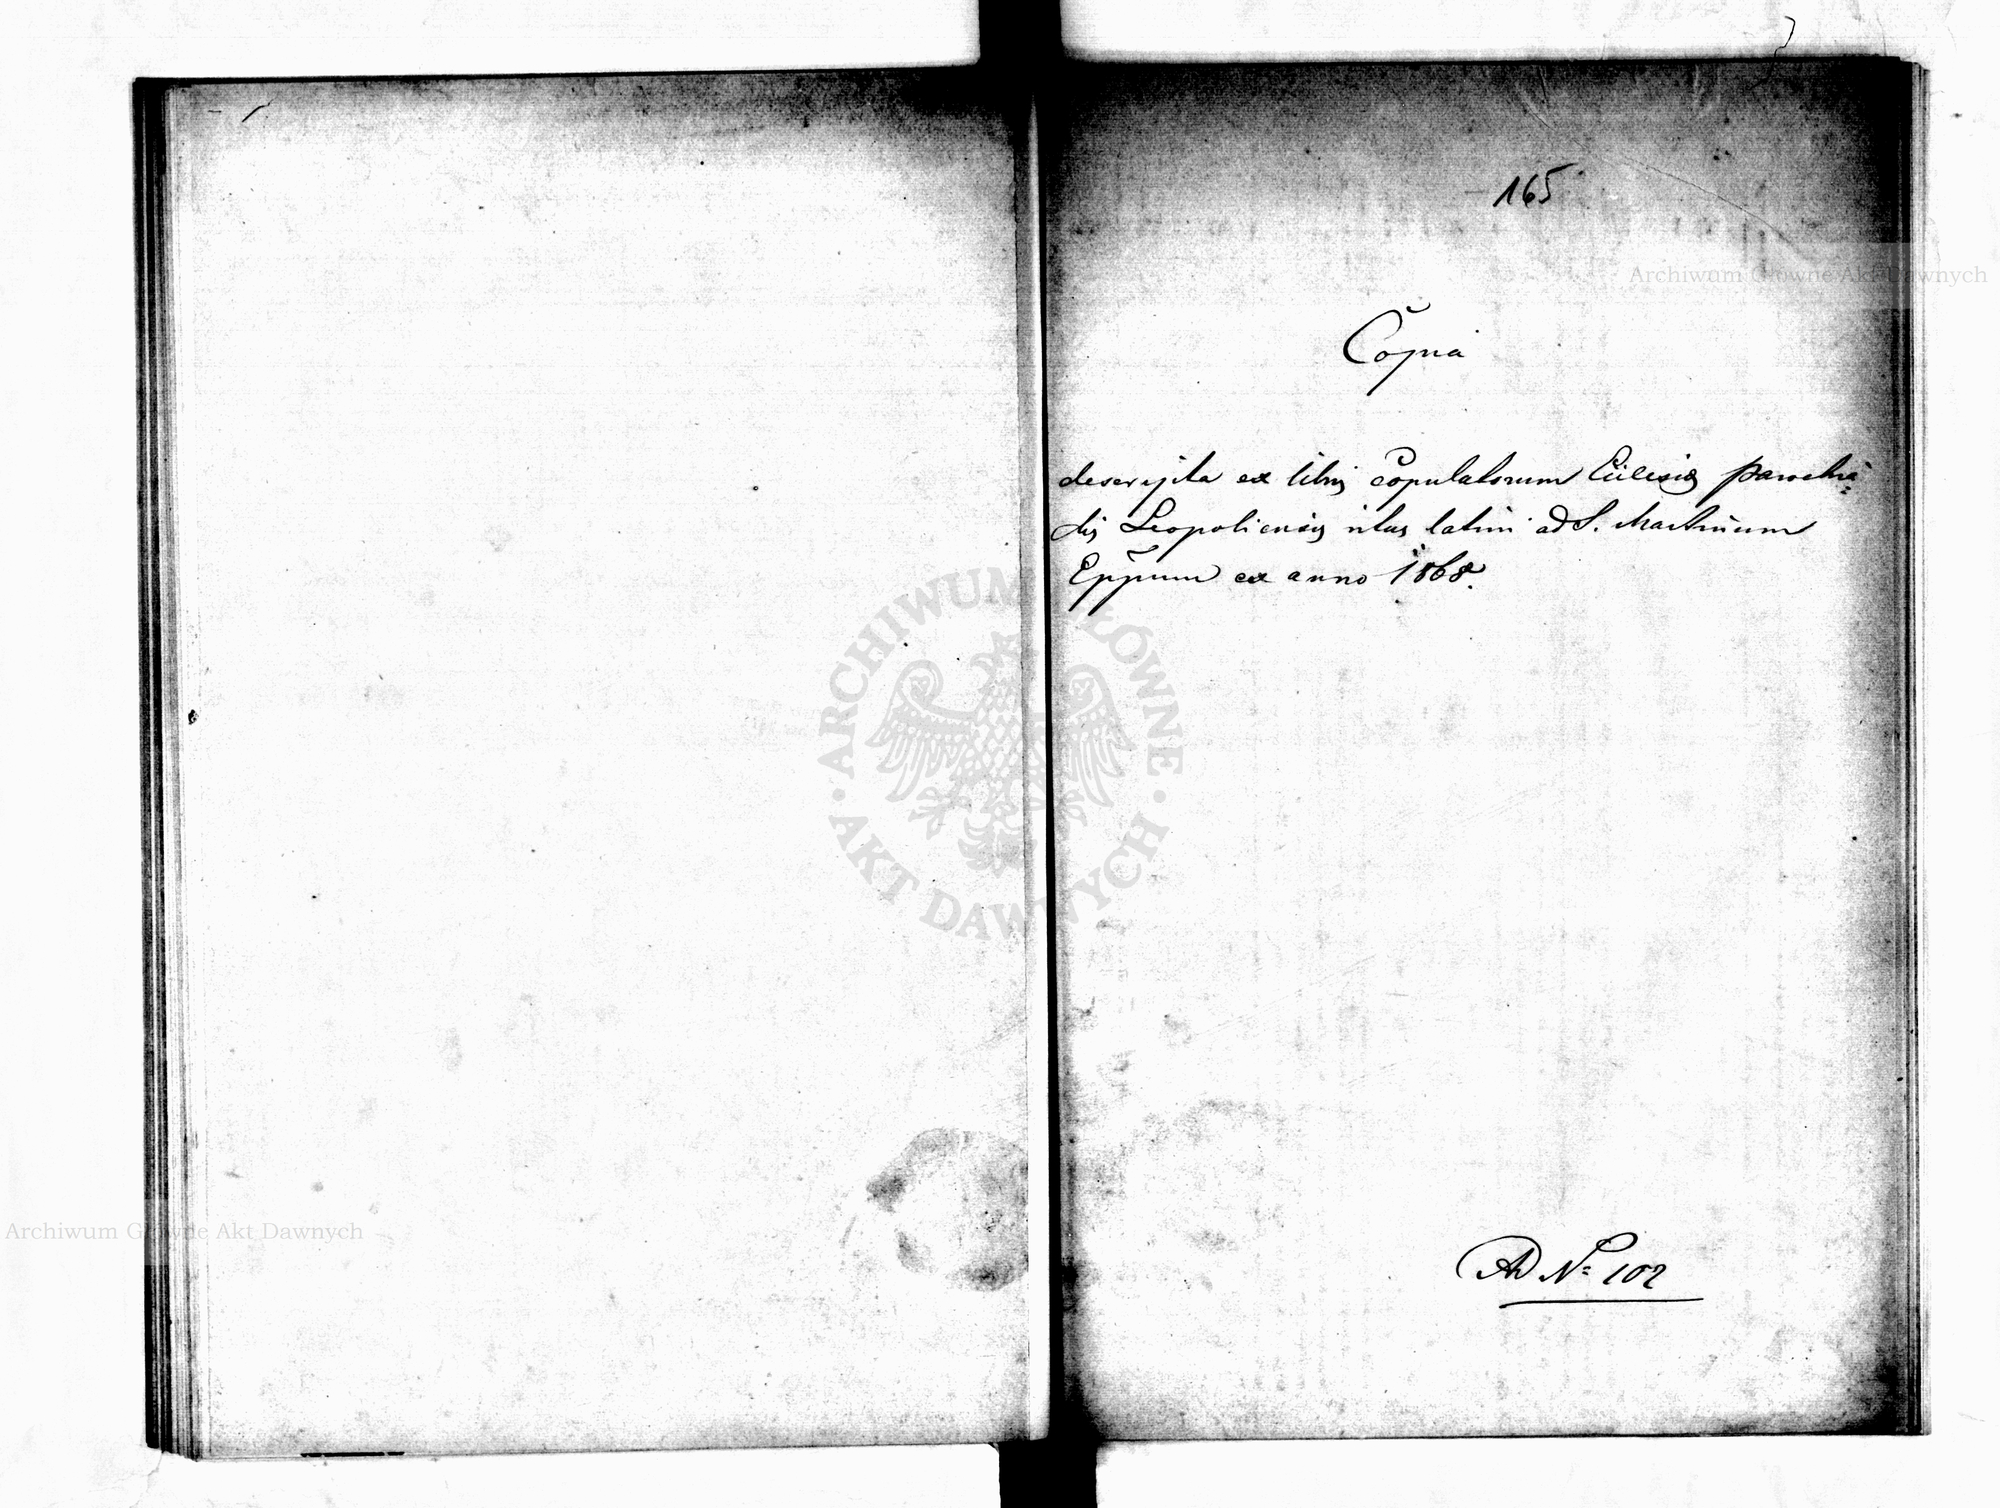 165
Copia
descripta ex libris copulatorum Ecclesiæ parochia=
lis Leopoliensis ritus latini ad S. Martinum
Eppum ex anno 1868.
Ad No 102
Archiwum Główne Akt Dawnych
Archiwum Główne Akt Dawnych
ARCHIWUM GŁÓWNE
AKT DAWNYCH